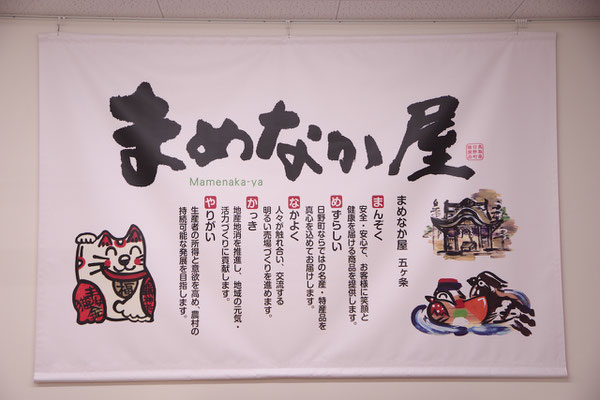 まめなか屋
Mamenaka-ya
まめなか屋 五ヶ条
まんぞく
安全・安心で、お客様に笑顔と
健康を届ける商品を提供します。
めずらしい
日野町ならではの名産・特産品を
真心を込めてお届けします。
なかよく
人々が触れ合い、交流する
明るい売場づくりを進めます。
かっき
地産地消を推進し、地域の元気・
活力づくりに貢献します。
やりがい
生産者の所得と意欲を高め、農村の
持続可能な発展を目指します。